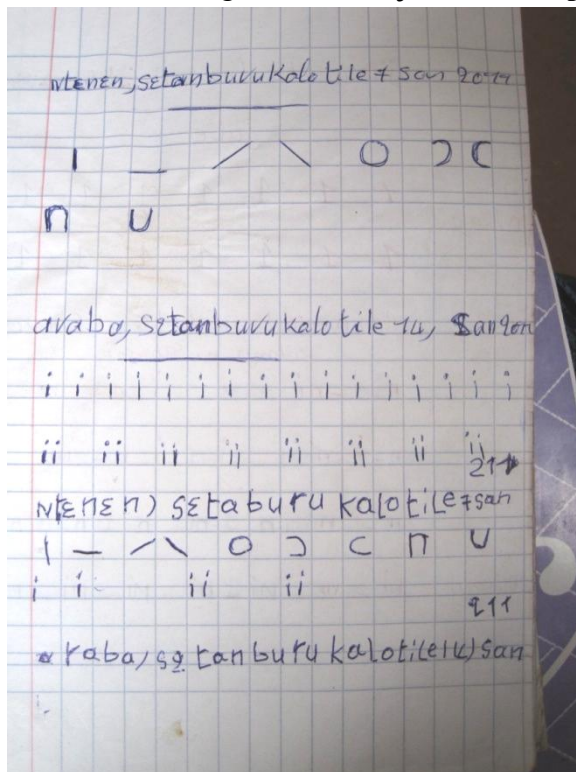 Ntɛnɛn, sɛtanburukalo tile 7 san 2011
ı _ / \ O Ɔ C
∩ U
araba, sɛtanburukalo tile 14, san 2011
i i i i i i i i i i i i i i i i
ii ii ii ii ii ii ii ii
211
Ntɛnɛn) sɛtaburu kalotile 7 san
| — / \ O Ɔ C ∩ U
i i ii ii
211
araba, sɛtanburu kalotile 14) san